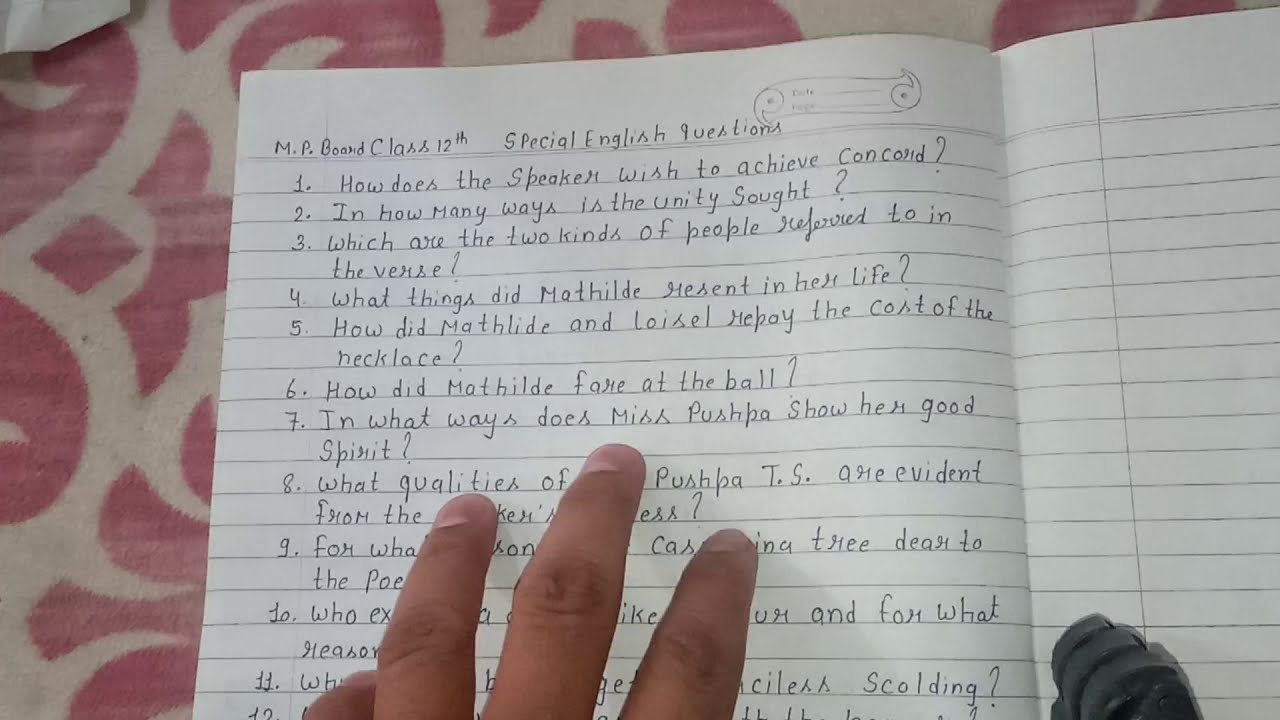 Date
Page
M.P. Board Class 12th Special English questions
1. How does the Speaker wish to achieve Concord?
2. In how many ways is the unity Sought?
3. Which are the two kinds of people referred to in
the verse?
4. What things did Mathilde resent in her life?
5. How did Mathlide and Loisel repay the cost of the
necklace?
6. How did Mathilde fare at the ball?
7. In what ways does Miss Pushpa Show her good
Spirit?
8. What qualities of Pushpa T.S. are evident
from the
9. for tree dear to
the
10. Who and for what
11. Scolding?
12.